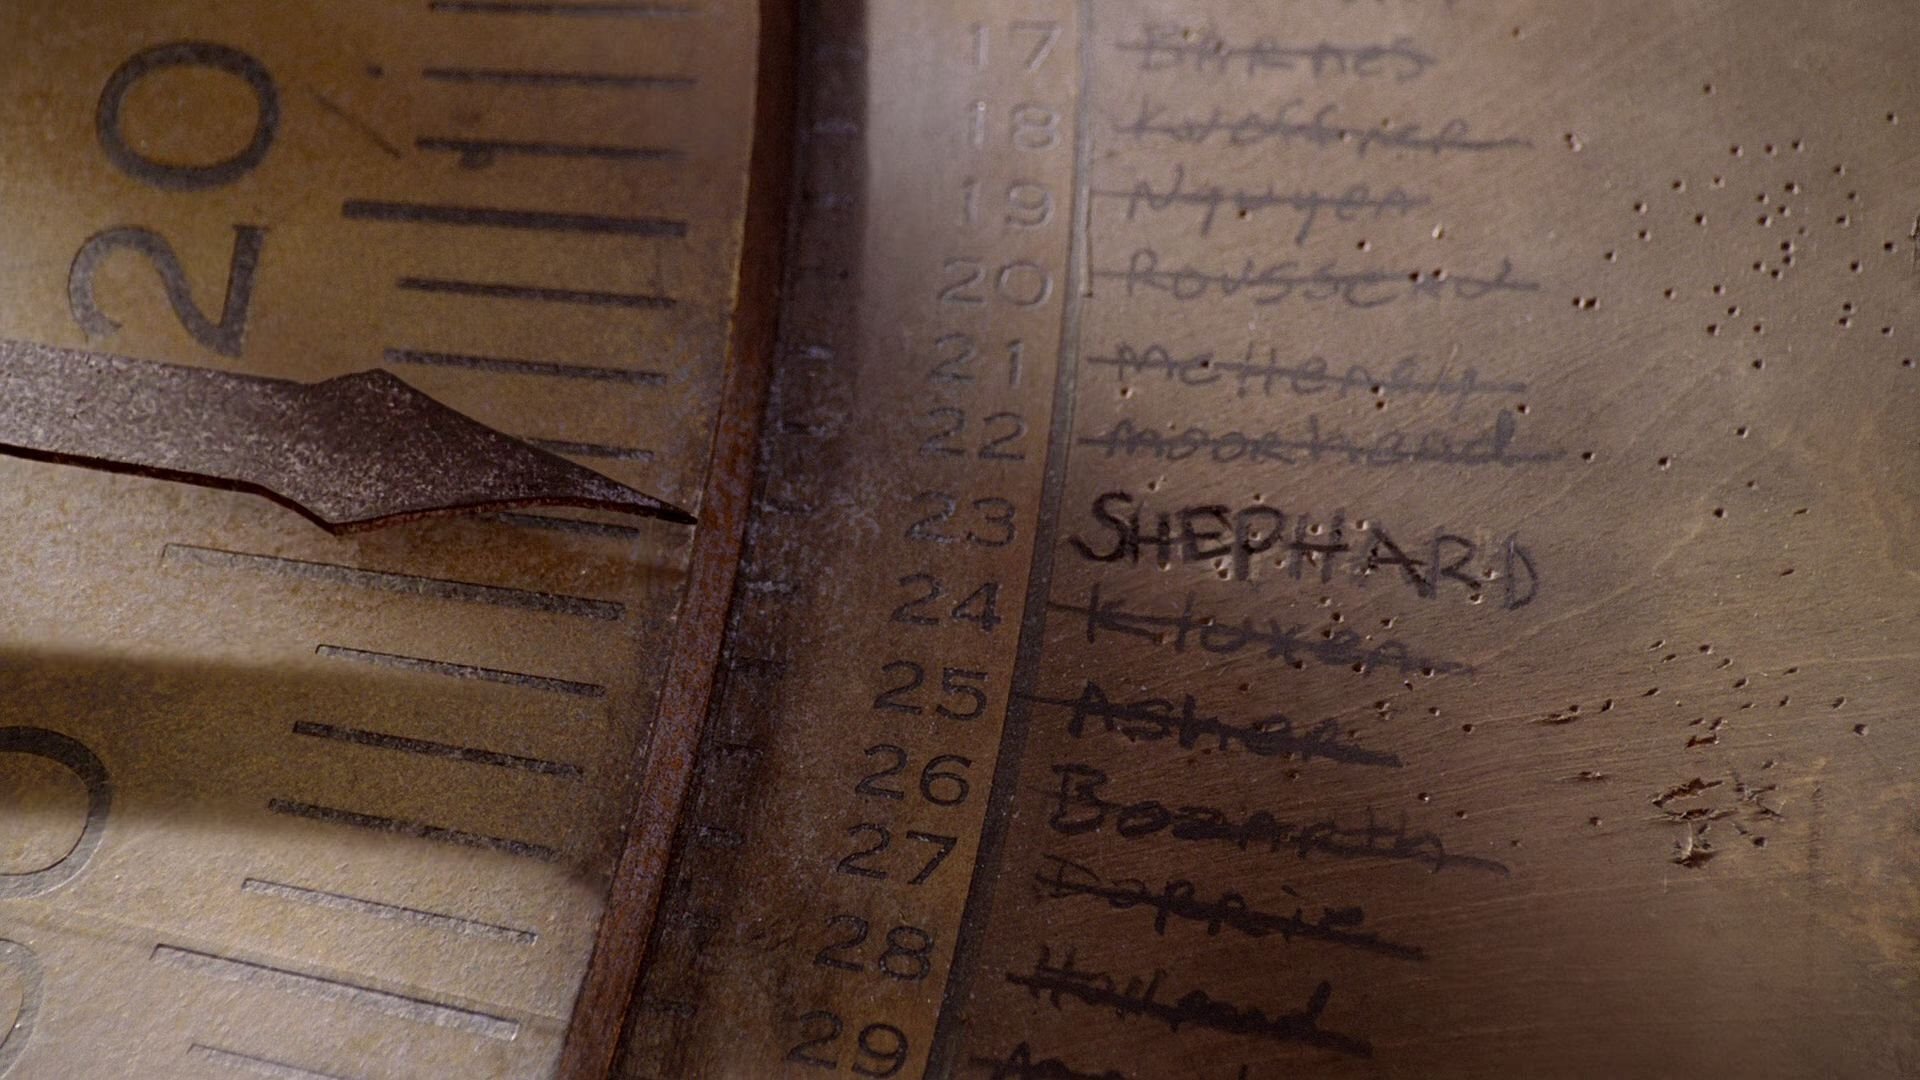 20
17 Barnes
18
19 Nguyen
20 Rousseau
21 McHenry
22 Moorhead
23 SHEPHARD
24 Kluxen
25 Asher
26 Bozarth
27
28 Holland
29